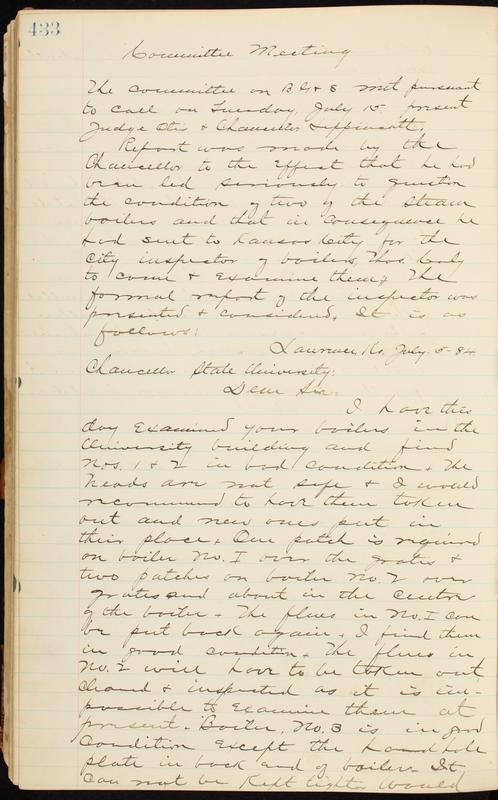 433
Committee Meeting
The committee on B. G. & S met pursuant
to call on Tuesday, July 15 present
Judge Otis & Chancellor Lippincott,
Report was made by the
Chancellor to the Effect that he had
been led seriously to question
the condition of two of the steam
boilers and that in consequence he
had sent to Kansas City for the
City inspector of boilers, Thos.
to come & Examine them; The
formal report of the inspector was
presented & considered. It is as
follows:
Lawrence, Ks. July. 5-84
Chancellor State University:
Dear Sir.
I have this
day Examined your boilers in the
University building and find
Nos. 1 & 2 in bad condition. The
heads are not safe & I would
recommend to have them taken
out and new ones put in
their place. One patch is required
on boiler No. I over the grates &
two patches on boiler No. 2 over
grates and about in the centre
of the boiler. The flues in No. I can
be put back again. I find them
in good condition. The flues in
No. 2 will have to be taken out
cleaned & inspected as it is im-
possible to Examine them at
present. Boiler, No. 3 is in good
condition Except the hand hole
plate in back end of boiler. It
can not be Kept tight. Would